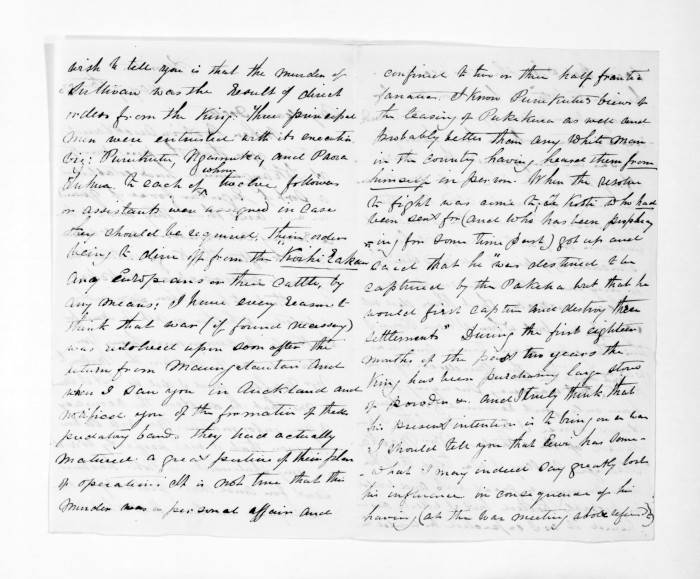 wish to tell you is that the murder of
Sullivan was the result of direct
orders from the King. Three principal
men were entrusted with its execution
viz: Purukutu, Ngamuka, and Paora
whom
Tuhua to each of ^ twelve followers
or assistants were assigned in case
they should be required, their orders
being to drive off from the
any Europeans or their cattle, by
any means: I have every reason to
think that war (if found necessary)
was resolved upon soon after the
return from Maungatautari and
when I saw you in Auckland and
notified you of the formation of these
predatory bands they had actually
matured a great portion of their plan
of operations It is not true that this
murder was a personal affair and
confined to two or three half frantic
fanatics. I know Purukutu's views to
the leasing of Pukekura as well and
probably better than any white man
in the country having heard them from
himself in person. When the resolution
to fight was come to, Koti who had
been sent for (and who has been prophesy
-ing for some time past) got up and
said that he "was destined to be
captured by the Pakeha but that he
would first capture and destroy three
settlements" During the first eighteen
months of the past two years the
King has been purchasing large stores
of powder &c. and I truly think that
his present intention is to bring on a war
I should tell you that Rewi has some-
-what I may indeed say greatly lost
his influence in consequence of his
having (at the war meeting above referred to)